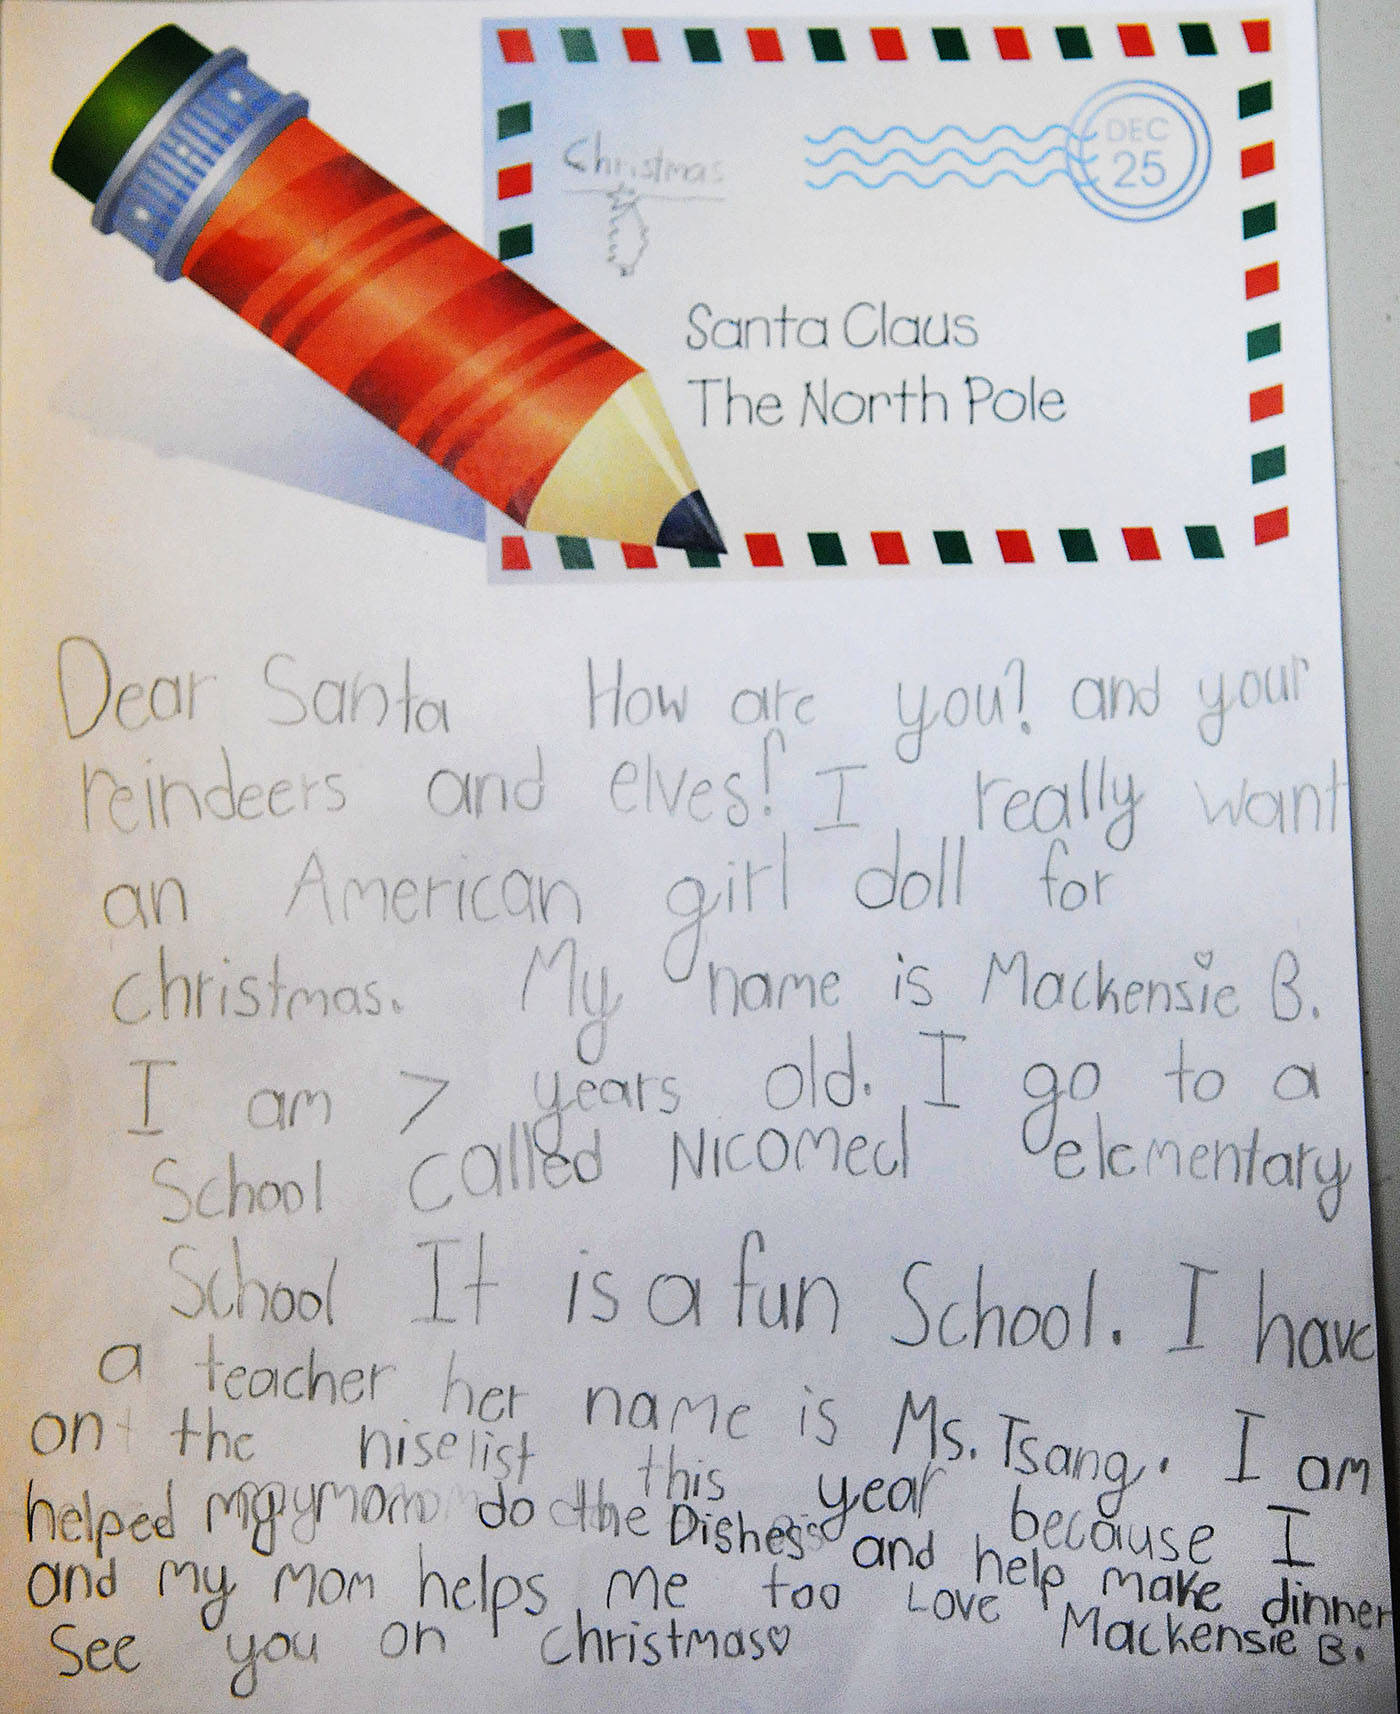 Christmas
DEC
25
Santa Claus
The North Pole
Dear Santa How are you? and your
reindeers and elves! I really want
an American girl doll for
christmas. My name is Mackensie B.
I am 7 years old. I go to a
School called Nicomecl elementary
School It is a fun School. I have
a teacher her name is Ms. Tsang. I am
on the niselist this year because I
helped my mom do the Dishes and help make dinner
and my mom helps me too Love Mackensie B.
See you on christmas♡